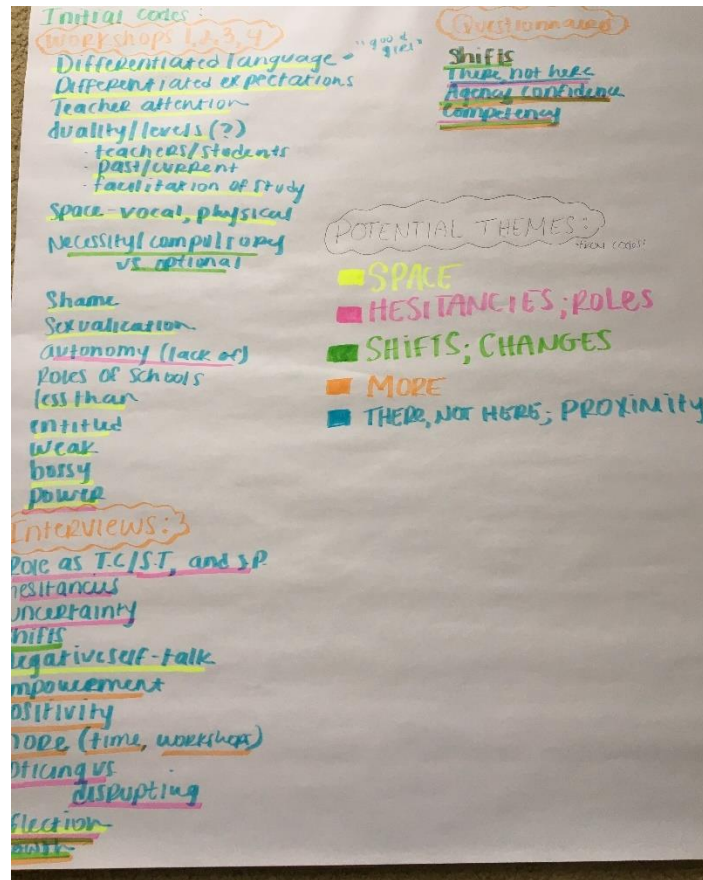 Initial codes:
Workshops 1, 2, 3, 4
Differentiated language - "good girls"
Differentiated expectations
Teacher attention
duality/levels (?)
- teachers/students
- past/current
- facilitation of study
Space - vocal, physical
Necessity/compulsory
vs optional
Shame
Sexualication
autonomy (lack of)
Roles of Schools
less than
entitled
weak
bossy
power
Interviews: 3
Role as T.C/S.T, and S.P.
hesitancies
uncertainty
hifts
egative self-talk
mpowerment
ositivity
more (time, workshops)
oticing vs
disrupting
flection
owth
Questionnaires
Shifts
There not here
Agency confidence
competency
POTENTIAL THEMES:
from codes:
SPACE
HESITANCIES; ROLES
SHIFTS; CHANGES
MORE
THERE, NOT HERE; PROXIMITY